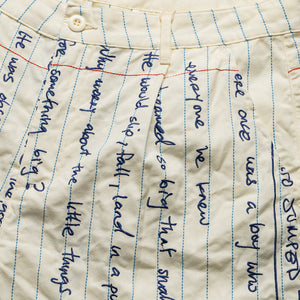 JUMPED
ere once was a boy who
everyone he knew
so big that
He would slip/fall/land in a pu
Why worry about the little things
something big?
He was